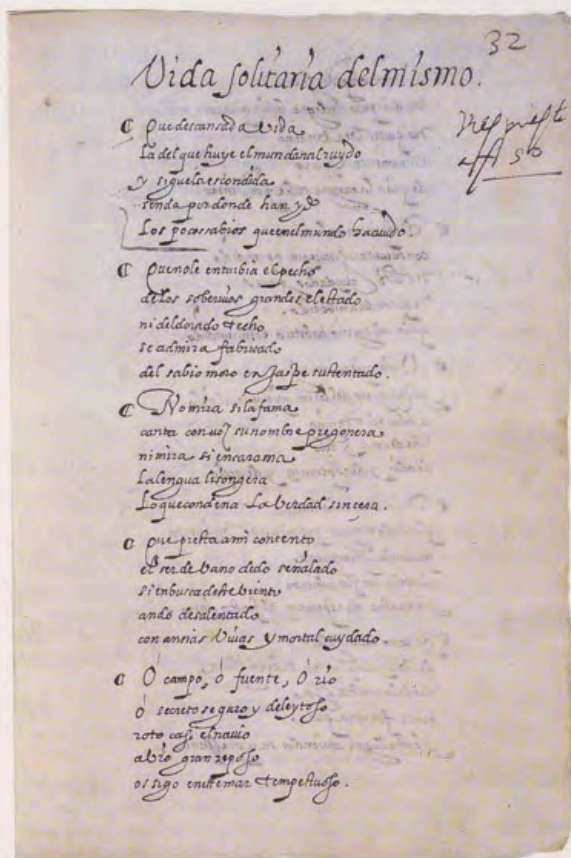 32
Vida solitaria del mismo.
Que descansada vida
La del que huye el mundanal ruydo
y sigue la escondida
senda por donde han ydo
Los pocos sabios que en el mundo ha auido.
Que no le enturbia el pecho
de los soberuios grandes el estado
ni del dorado techo
se admira fabricado
del sabio moro en Jaspe sustentado.
No mira si la fama
canta con voz su nombre pregonera
ni mira si encarama
La lengua lisongera
Lo que condena La verdad sincera.
Que presta a mi contento
el ser de vano dedo señalado
si en busca deste viento
ando desalentado
con ansias viuas y mortal cuydado.
O campo, ó fuente, ó rio
ó secreto seguro y deleytoso
roto casi el nauio
a vro gran reposo
os sigo en este mar tempestuoso.